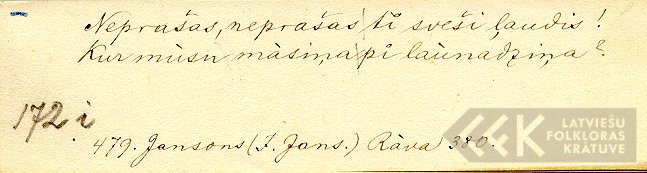 Neprašas, neprašas ti sveši ļaudis!
Kur mūsu māsiņa pi launadziņa?
172 i
479. Jansons (J. Jans.) Rāva 380.
LATVIEŠU
FOLKLORAS
KRĀTUVE